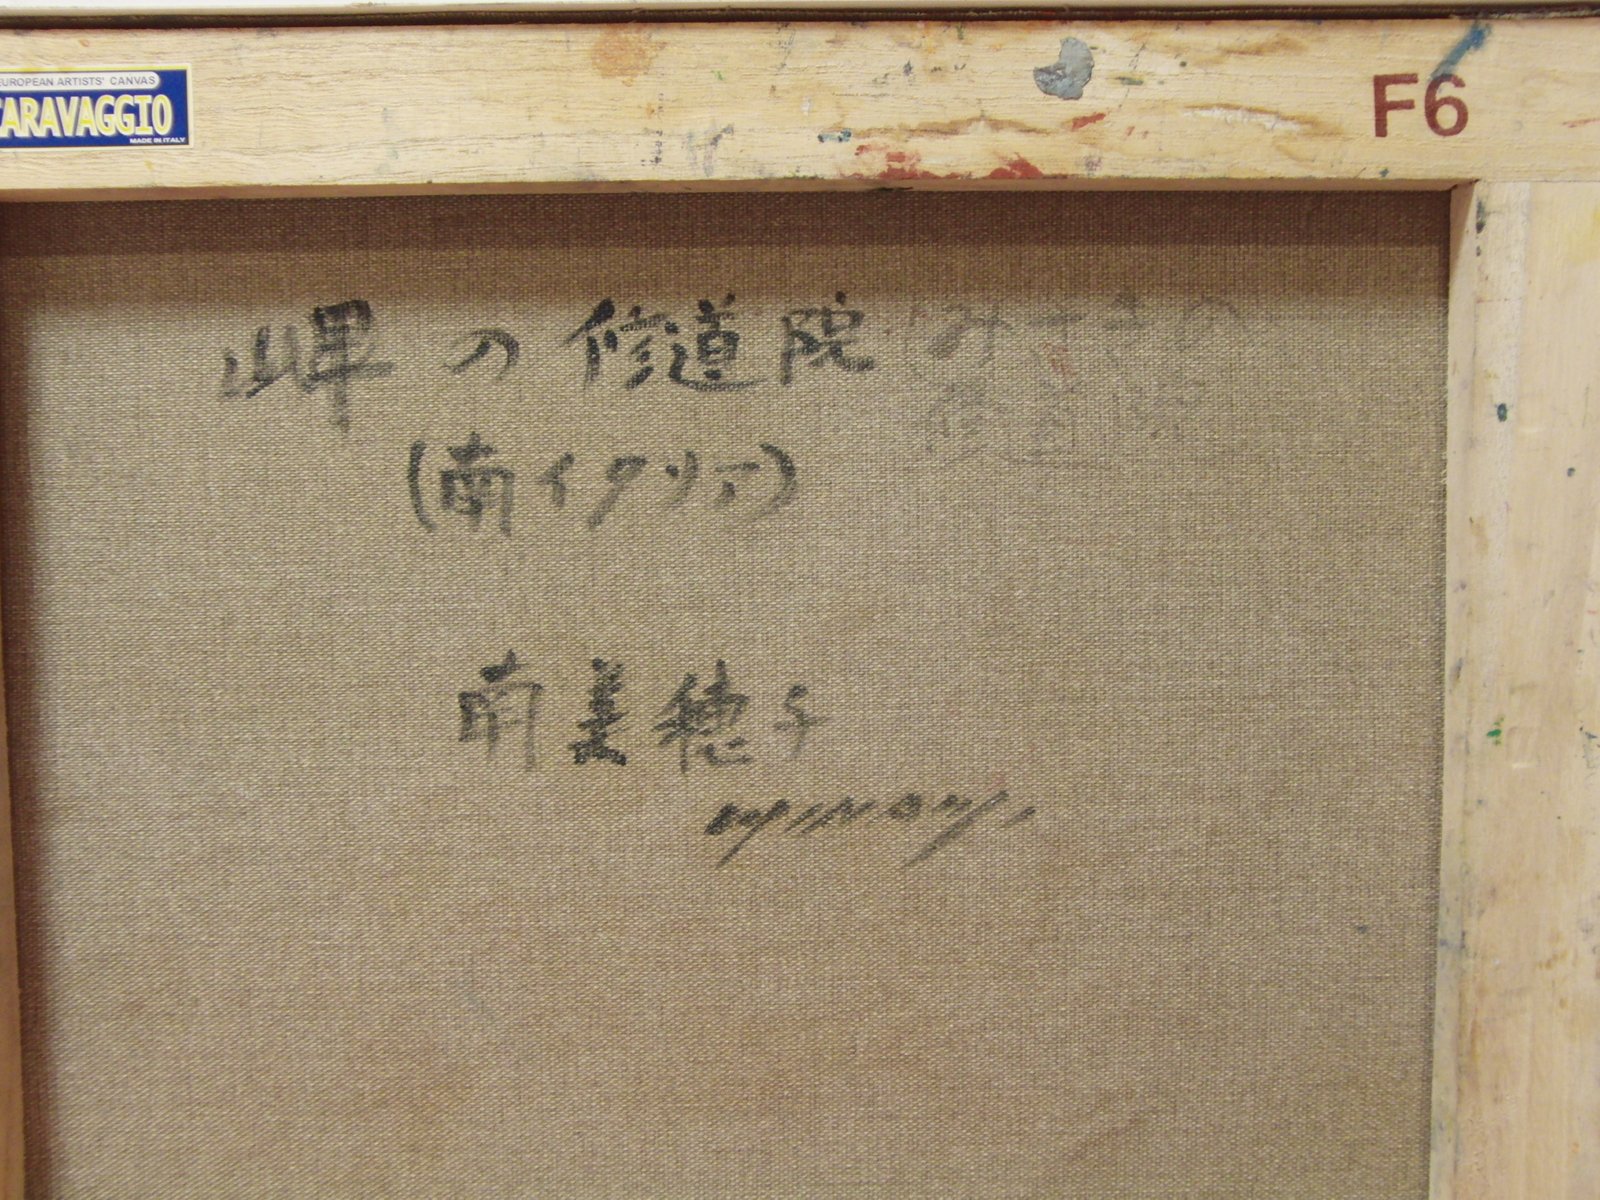 EUROPEAN ARTISTS' CANVAS
CARAVAGGIO
MADE IN ITALY
F6
岬の修道院 みさきの
修道院
(南イタリア)
南美穂子